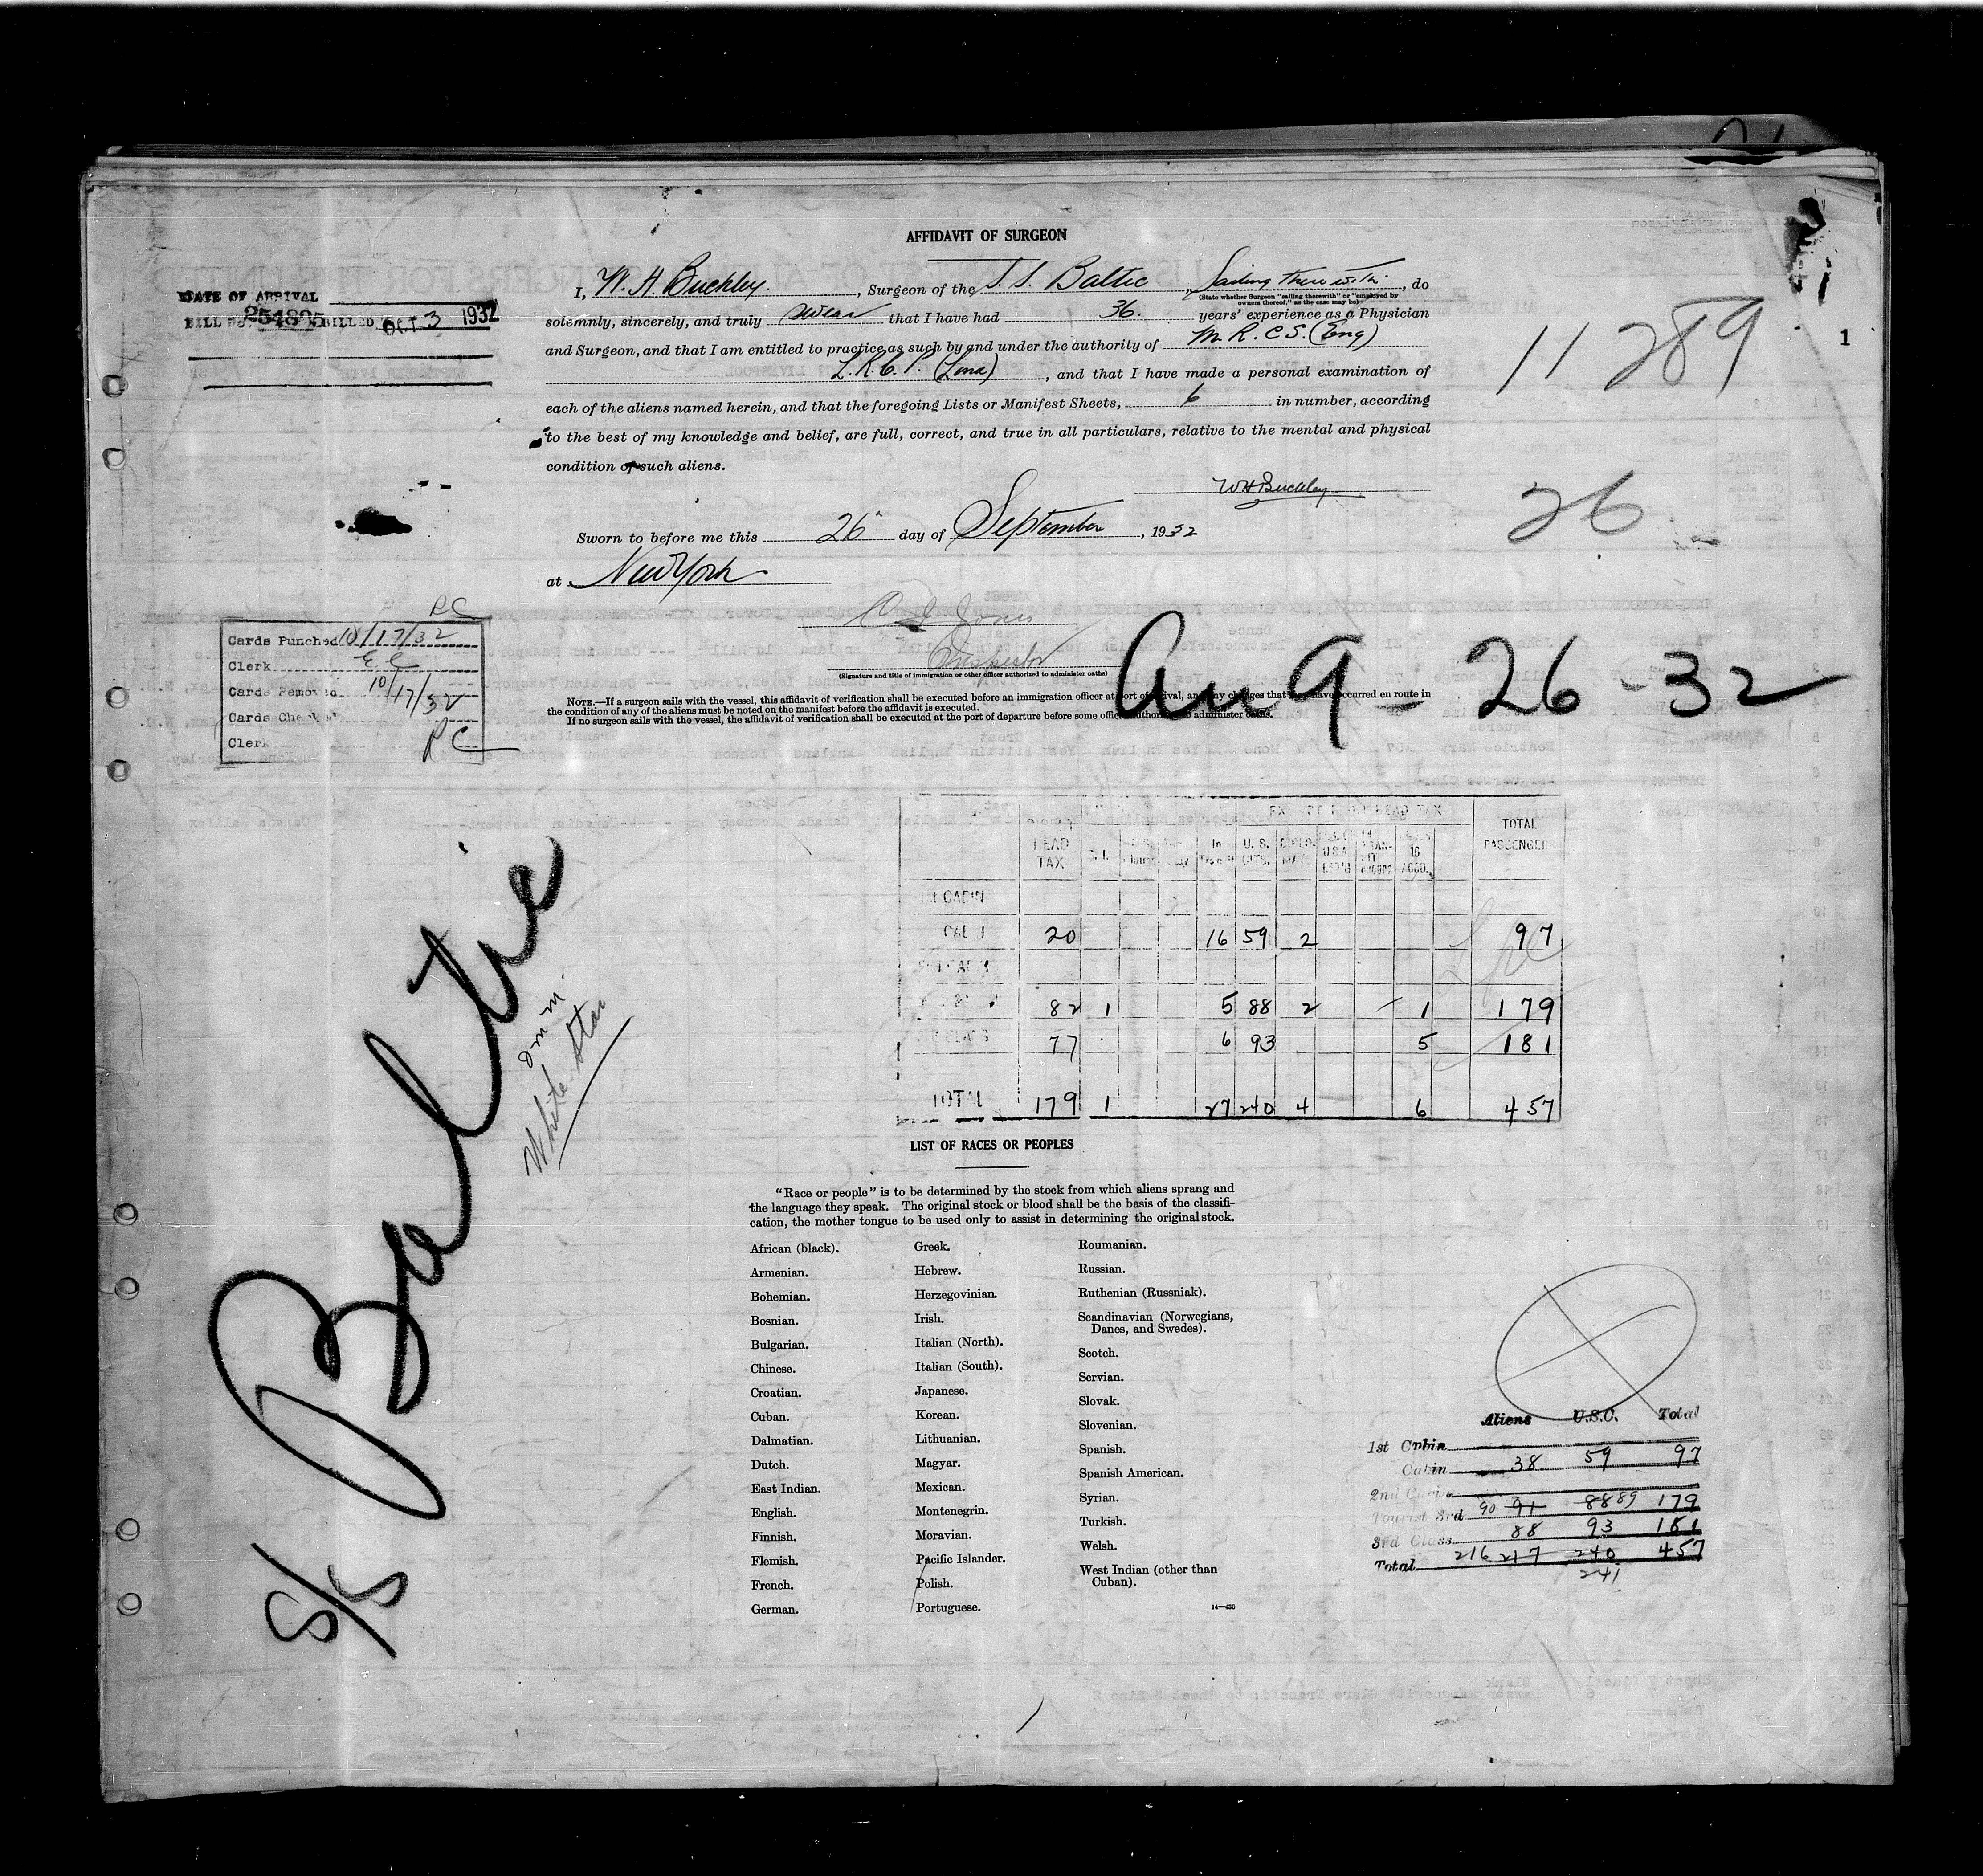 AFFIDAVIT OF SURGEON
I, W. H. Buckley, Surgeon of the S. S. Baltic, Sailing therewith, do
(State whether Surgeon "sailing therewith" or "employed by
owners thereof," as the case may be)
solemnly, sincerely, and truly swear that I have had 36. years' experience as a Physician
and Surgeon, and that I am entitled to practice as such by and under the authority of M. R. C S. (Eng)
L. R. C. P. (Lond), and that I have made a personal examination of
each of the aliens named herein, and that the foregoing Lists or Manifest Sheets, 6 in number, according
to the best of my knowledge and belief, are full, correct, and true in all particulars, relative to the mental and physical
condition of such aliens.
WH Buckley
Sworn to before me this 26 day of September, 1932
at New York
Jones
Inspector
(Signature and title of immigration or other officer authorized to administer oaths)
NOTE.—If a surgeon sails with the vessel, this affidavit of verification shall be executed before an immigration officer at port of arrival, and any changes that may have occurred en route in
the condition of any of the aliens must be noted on the manifest before the affidavit is executed.
If no surgeon sails with the vessel, the affidavit of verification shall be executed at the port of departure before some officer authorized to administer oaths.
DATE OF ARRIVAL
BILL NO. 254895 BILLED OCT 3 1932
11289
1
26
RC
Cards Punched 10/17/32
Clerk EC
Cards Removed 10/17/32
Cards Checked
Clerk RC
Au 9-26-32
S/S Baltic
White Star
HEAD TAX
In
U. S. CITS.
16 ACCO.
TOTAL PASSENGER
1st CABIN
CABIN 20 16 59 2 97
82 1 5 88 2 1 179
CLASS 77 6 93 5 181
TOTAL 179 1 27 240 4 6 457
LIST OF RACES OR PEOPLES
"Race or people" is to be determined by the stock from which aliens sprang and
the language they speak. The original stock or blood shall be the basis of the classifi-
cation, the mother tongue to be used only to assist in determining the original stock.
African (black).
Armenian.
Bohemian.
Bosnian.
Bulgarian.
Chinese.
Croatian.
Cuban.
Dalmatian.
Dutch.
East Indian.
English.
Finnish.
Flemish.
French.
German.
Greek.
Hebrew.
Herzegovinian.
Irish.
Italian (North).
Italian (South).
Japanese.
Korean.
Lithuanian.
Magyar.
Mexican.
Montenegrin.
Moravian.
Pacific Islander.
Polish.
Portuguese.
Roumanian.
Russian.
Ruthenian (Russniak).
Scandinavian (Norwegians,
Danes, and Swedes).
Scotch.
Servian.
Slovak.
Slovenian.
Spanish.
Spanish American.
Syrian.
Turkish.
Welsh.
West Indian (other than
Cuban).
14—430
Aliens U.S.C. Total
1st Cabin
Cabin 38 59 97
2nd Cabin
Tourist 3rd 90 91 88 89 179
3rd Class 88 93 181
Total 216 217 240 457
241